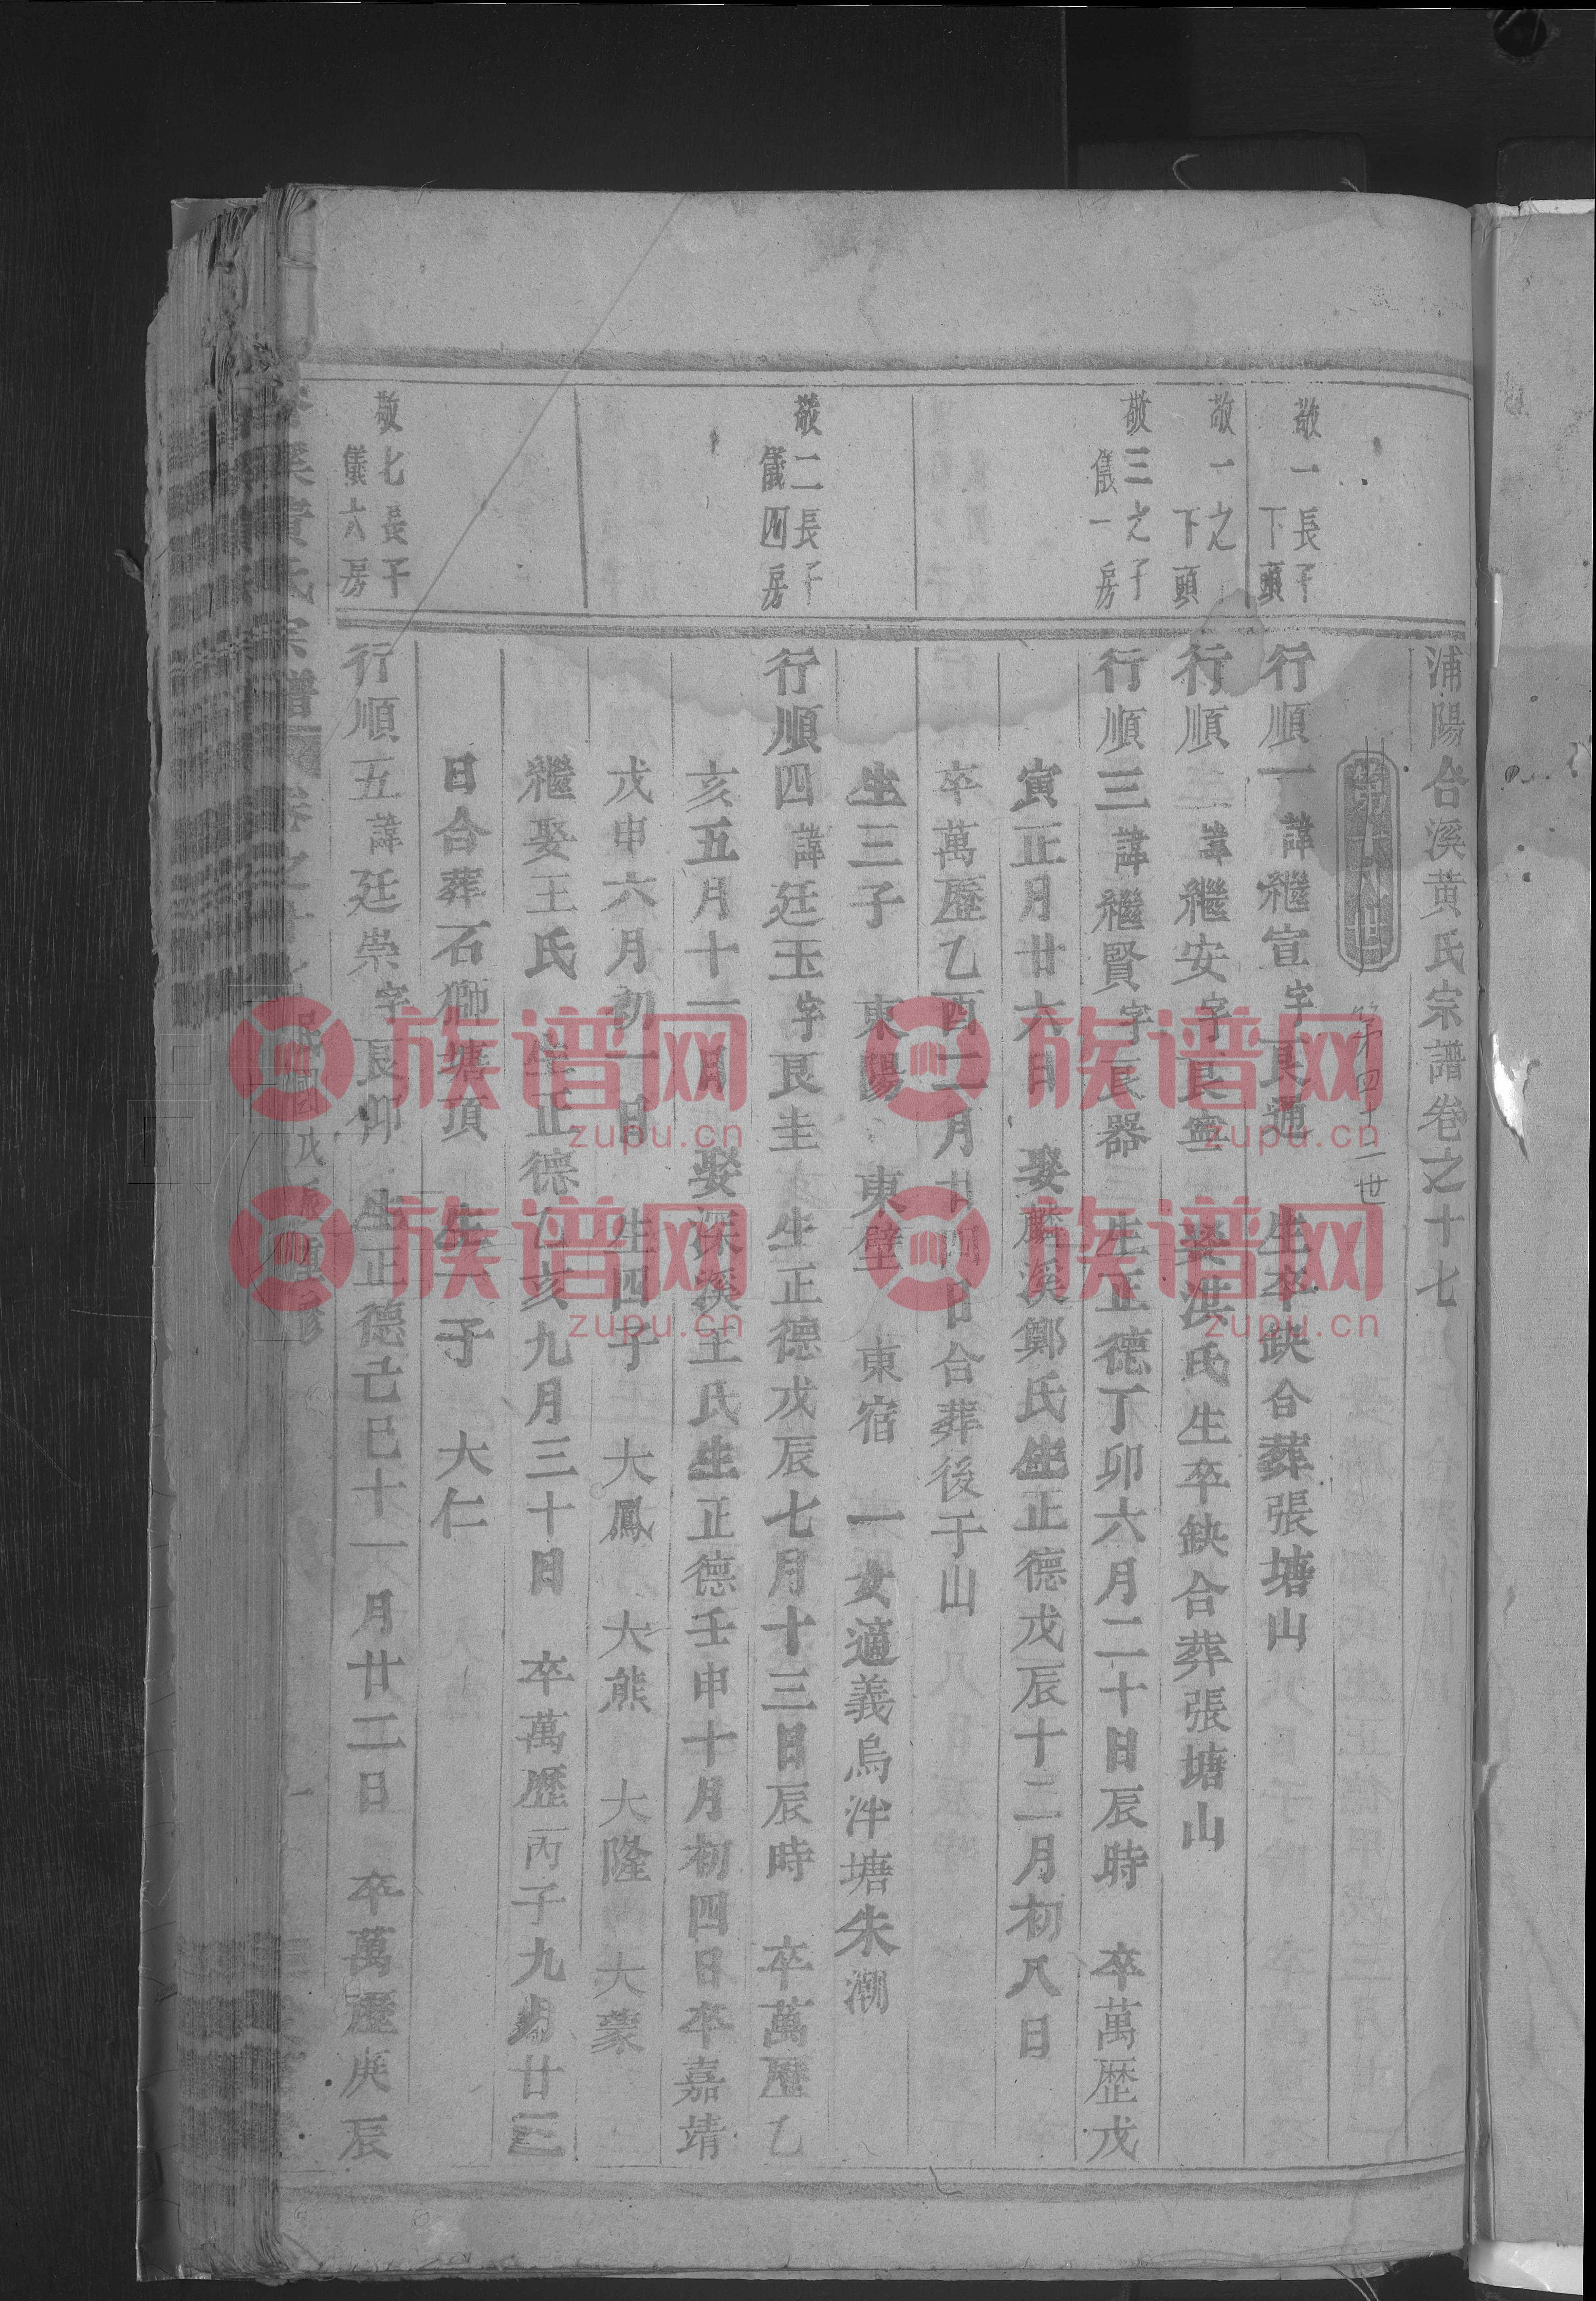 浦陽合溪黄氏宗譜卷之十七
第四十二世
敬一長子
下頭
行順一諱繼宣字艮通 生卒缺合葬張塘山
敬一之
下頭
行順二諱繼安字艮寧 娶洪氏生卒缺合葬張塘山
敬三之子
儀一房
行順三諱繼賢字艮器 生正德丁卯六月二十日辰時 卒萬歷戊
寅正月廿六日 娶麟溪鄭氏生正德戊辰十二月初八日
卒萬歷乙酉二月廿四日合葬後于山
生三子 東陽 東壁 東宿 一女適義烏泮塘朱潮
敬二長子
儀四房
行順四諱廷玉字艮圭 生正德戊辰七月十三日辰時 卒萬歷乙
亥五月十一月 娶深溪王氏生正德壬申十月初四日卒嘉靖
戊申六月初一日 生四子 大鳳 大熊 大隆 大蒙
繼娶王氏 生正德乙亥九月三十日 卒萬歷丙子九月廿三
日合葬石獅塘頂 生一子 大仁
敬七長子
儀六房
行順五諱廷崇字艮仰 生正德己巳十一月廿二日 卒萬歷庚辰
族谱网
zupu.cn
族谱网
zupu.cn
族谱网
zupu.cn
族谱网
zupu.cn